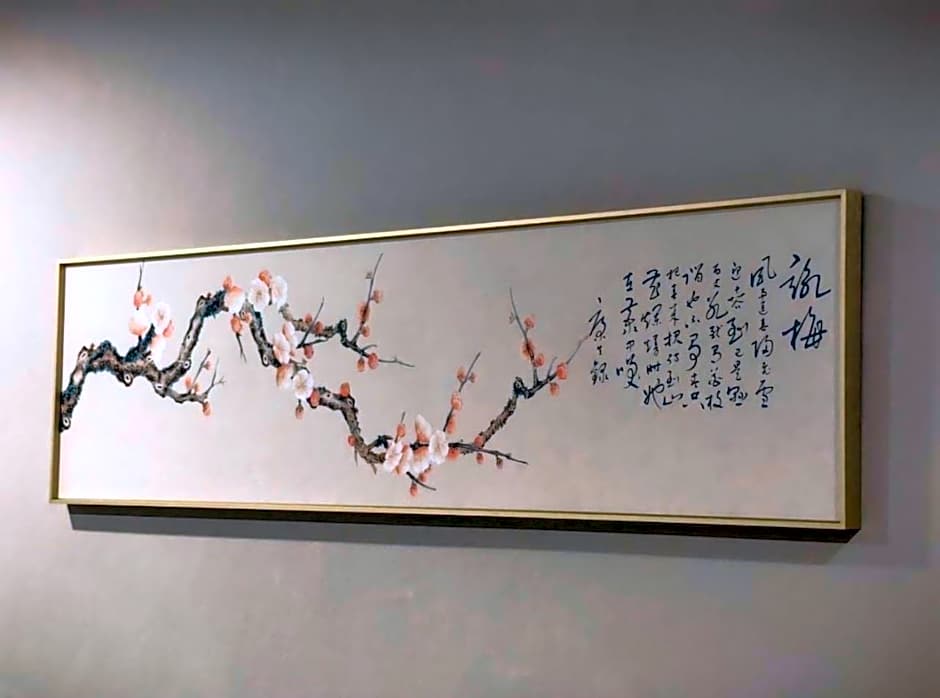 詠梅
風雨送春归飛雪
迎春到已是懸
百丈冰犹有花枝
俏也不争春只
把春来报待到山
花爛熳時她
在叢中笑
錄